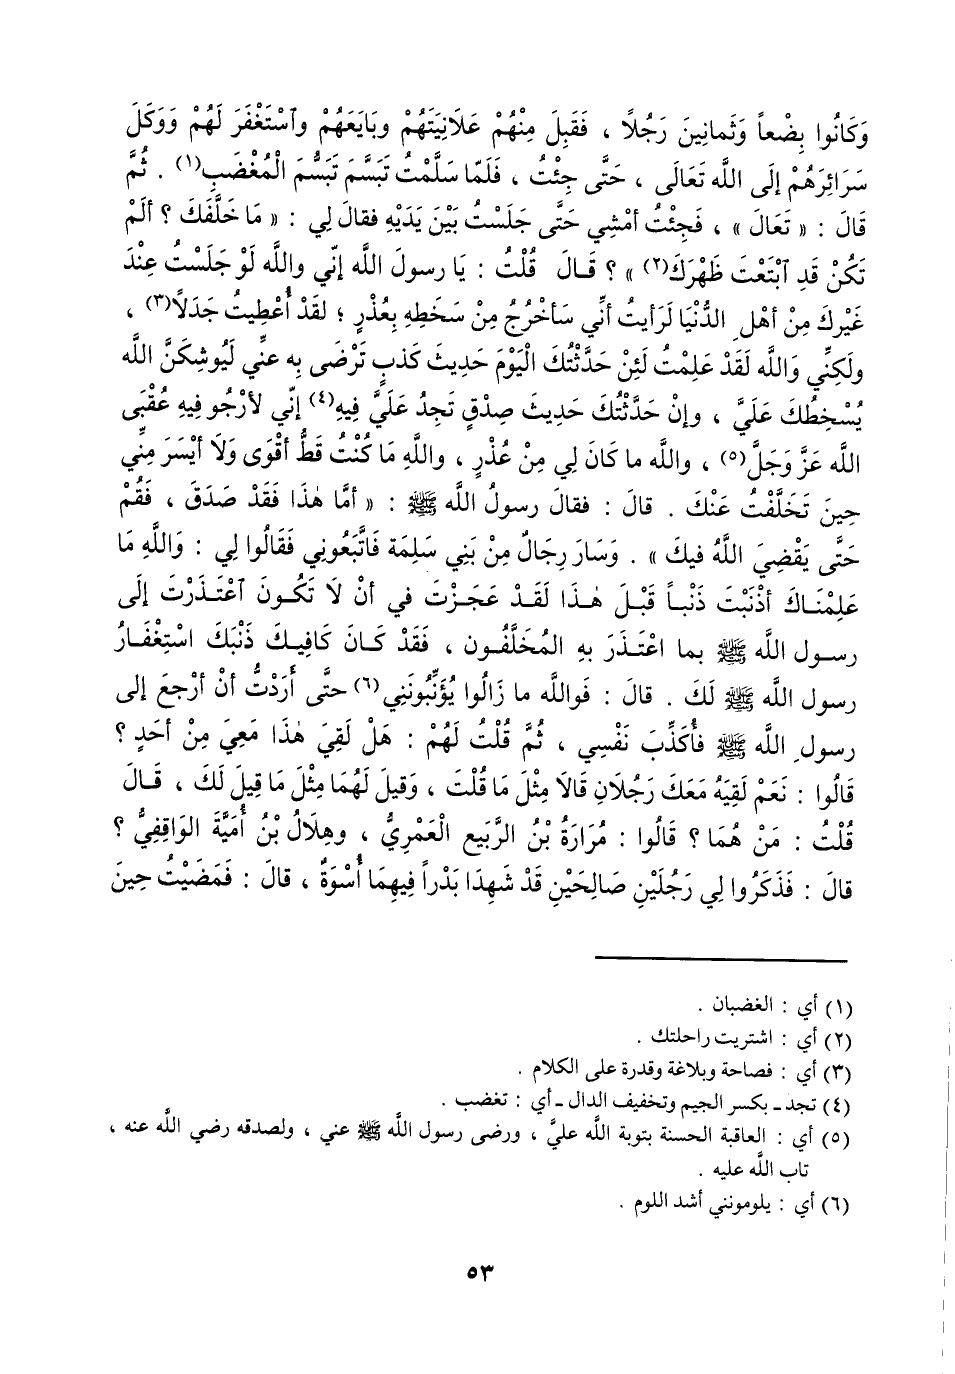 وَكَانُوا بِضْعاً وَثَمانِينَ رَجُلاً ، فَقَبِلَ مِنْهُمْ عَلَانِيَتَهُمْ وبَايَعَهُمْ وٱسْتَغْفَرَ لَهُمْ وَوَكَلَ
سَرَائِرَهُمْ إلَى اللَّه تَعَالَى ، حَتَّى جِئْتُ ، فَلَمّا سَلَّمْتُ تَبَسَّمَ تَبَسُّمَ الْمُغْضَبِ(١) . ثُمَّ
قَالَ : « تَعَالَ » ، فَجِئْتُ أمْشِي حَتَّى جَلَسْتُ بَيْنَ يَدَيْهِ فقالَ لِي : « مَا خَلَّفَكَ ؟ ألَمْ
تَكُنْ قَدِ ٱبْتَعْتَ ظَهْرَكَ(٢) » ؟ قَالَ قُلْتُ : يَا رسولَ اللَّه إنّي واللَّه لَوْ جَلَسْتُ عِنْدَ
غَيْرِكَ مِنْ أهْلِ الدُّنْيَا لَرَأيتُ أنّي سَأخْرُجُ مِنْ سَخَطِهِ بِعُذْرٍ ؛ لقَدْ أُعْطِيتُ جَدَلاً(٣) ،
ولَكِنِّي وَاللَّه لَقَدْ عَلِمْتُ لَئِنْ حَدَّثْتُكَ الْيَوْمَ حَدِيثَ كَذبٍ تَرْضَى بِه عنِّي لَيُوشِكَنَّ اللَّه
يُسْخِطُكَ عَلَيَّ ، وإنْ حَدَّثْتُكَ حَدِيثَ صِدْقٍ تَجِدُ عَلَيَّ فِيهِ(٤) إنّي لأرْجُو فِيهِ عُقْبَى
اللَّه عَزَّ وَجَلَّ(٥) ، واللَّه ما كَانَ لِي مِنْ عُذْرٍ ، واللَّهِ مَا كُنْتُ قَطُّ أقْوَى وَلَا أيْسَرَ مِنِّي
حِينَ تَخَلَّفْتُ عَنْكَ . قالَ : فقالَ رسولُ اللَّه ﷺ : « أمَّا هٰذَا فَقَدْ صَدَقَ ، فَقُمْ
حَتَّى يَقْضِيَ اللَّهُ فيكَ » . وَسَارَ رِجَالٌ مِنْ بَنِي سَلِمَة فَاتَّبَعُونِي فَقَالُوا لِي : وَاللَّهِ مَا
عَلِمْنَاكَ أذْنَبْتَ ذَنْباً قَبْلَ هٰذَا لَقَدْ عَجَزْتَ في أنْ لَا تَكُونَ ٱعْتَذَرْتَ إلَى
رسولِ اللَّه ﷺ بما اعْتَذَرَ بِهِ المُخَلَّفُون ، فَقَدْ كَانَ كَافِيكَ ذَنْبَكَ اسْتِغْفَارُ
رسولِ اللَّه ﷺ لَكَ . قالَ : فَواللَّه ما زَالُوا يُؤَنِّبُونَنِي(٦) حتَّى أرَدْتُ أنْ أرْجِعَ إلى
رسولِ اللَّه ﷺ فأُكَذِّبَ نَفْسِي ، ثُمَّ قُلْتُ لَهُمْ : هَلْ لَقِيَ هٰذَا مَعِيَ مِنْ أحَدٍ ؟
قَالُوا : نَعَمْ لَقِيَهُ مَعَكَ رَجُلَانِ قَالَا مِثْلَ مَا قُلْتَ ، وَقِيلَ لَهُمَا مِثْلَ مَا قِيلَ لَكَ ، قَالَ
قُلْتُ : مَنْ هُمَا ؟ قَالُوا : مُرَارَةُ بْنُ الرَّبِيعِ الْعَمْرِيُّ ، وهِلَالُ بْنُ أُمَيَّةَ الوَاقِفِيُّ ؟
قالَ : فَذَكَرُوا لِي رَجُلَيْنِ صَالِحَيْنِ قَدْ شَهِدَا بَدْراً فِيهِمَا أُسْوَةٌ ، قالَ : فَمَضَيْتُ حِينَ
(١) أي : الغضبان .
(٢) أي : اشتريت راحلتك .
(٣) أي : فصاحة وبلاغة وقدرة على الكلام .
(٤) تجد ـ بكسر الجيم وتخفيف الدال ـ أي : تغضب .
(٥) أي : العاقبة الحسنة بتوبة اللَّه عليَّ ، ورضى رسول اللَّه ﷺ عني ، ولصدقه رضي اللَّه عنه ،
تاب اللَّه عليه .
(٦) أي : يلومونني أشد اللوم .
٥٣